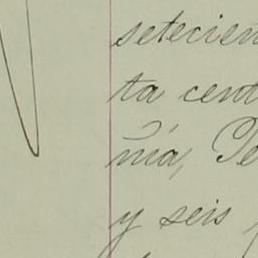 setecien
ta cent
nía, Pe
y seis